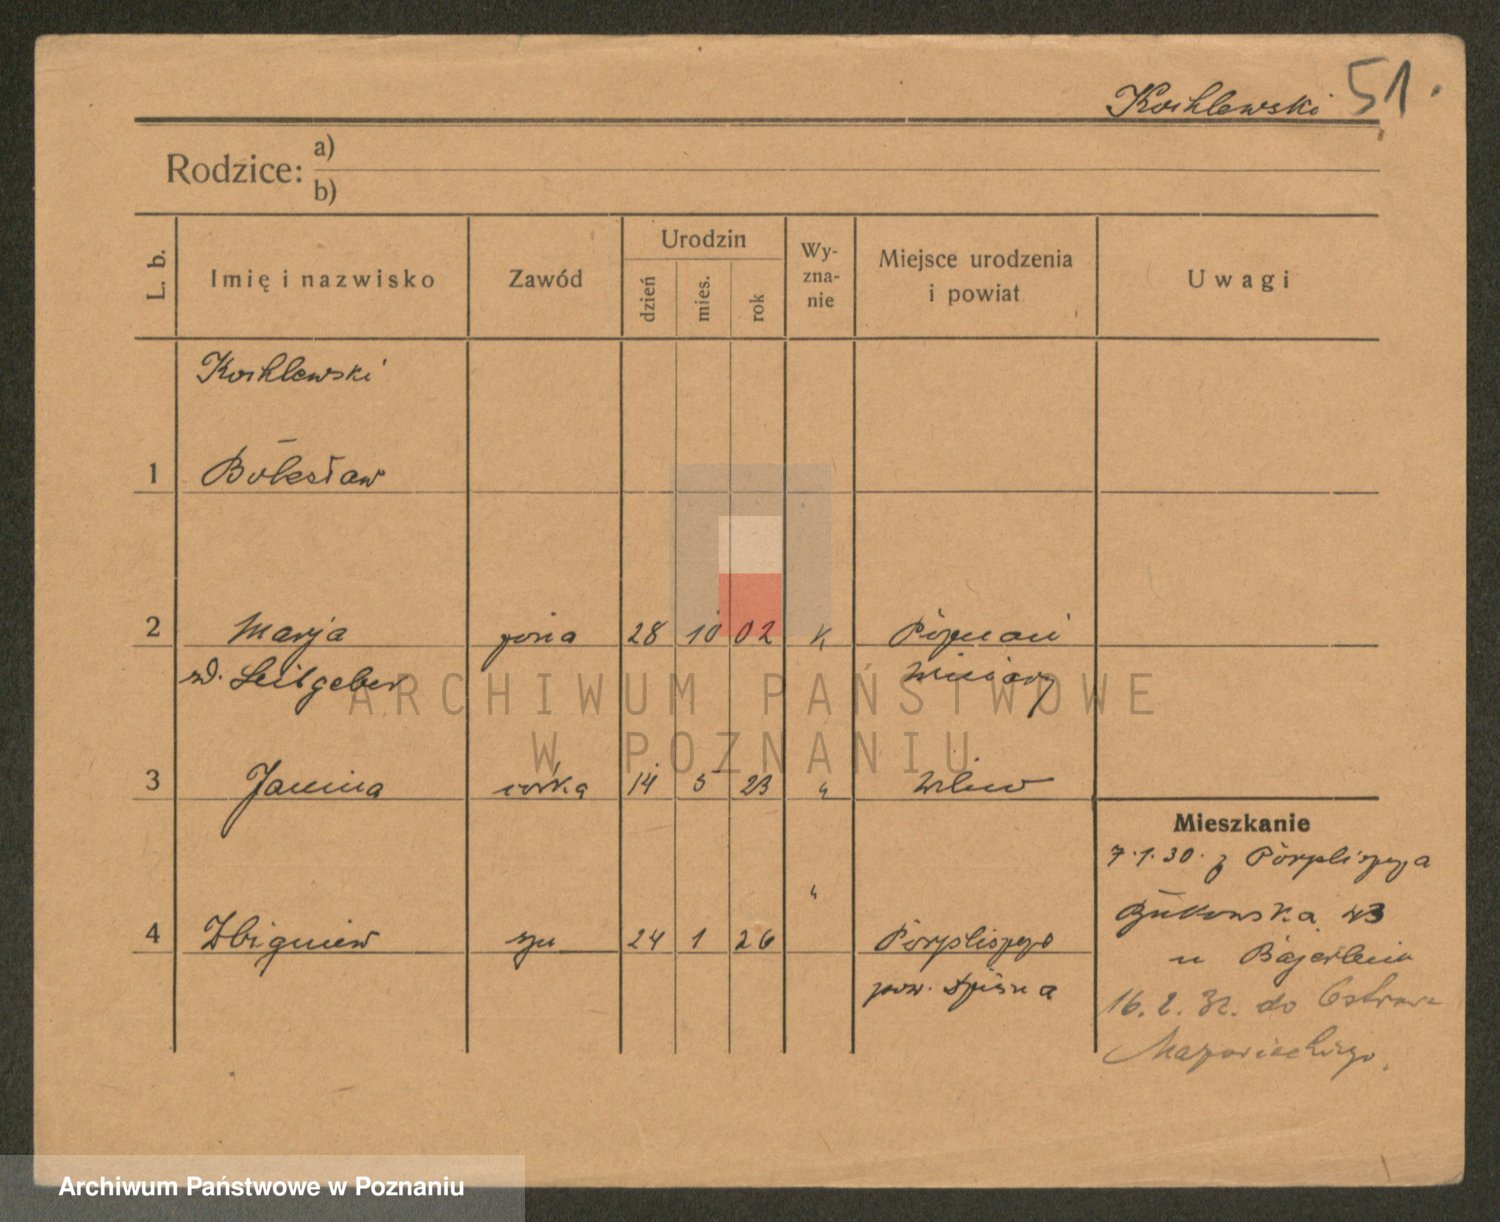 Kochlewski 51.
Rodzice: a)
b)
L. b. Imię i nazwisko Zawód Urodzin dzień mies. rok Wy-zna-nie Miejsce urodzenia i powiat Uwagi
Kochlewski
1 Bolesław
2 Marja żona 28 10 02 k Poznań
zd. Leitgeber Winiary
ARCHIWUM PAŃSTWOWE
W POZNANIU
3 Janina córka 14 5 23 " Wilno
Mieszkanie
7.1.30. z
"
Bukowska 43
4 Zbigniew syn 24 1 26
u
pow. Dzisna
16. 2. 32. do Ostrowa
Mazowieckiego.
Archiwum Państwowe w Poznaniu